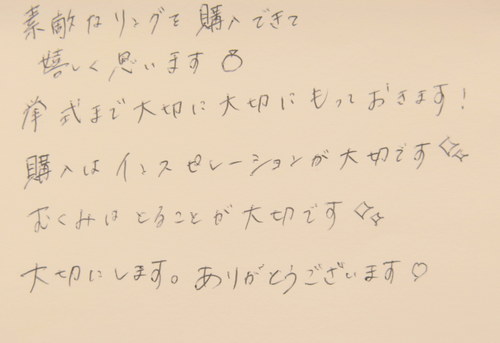 素敵なリングを購入できて
嬉しく思います💍
挙式まで大切に大切にもっておきます！
購入はインスピレーションが大切です✨
むくみはとることが大切です✨
大切にします。ありがとうございます♡